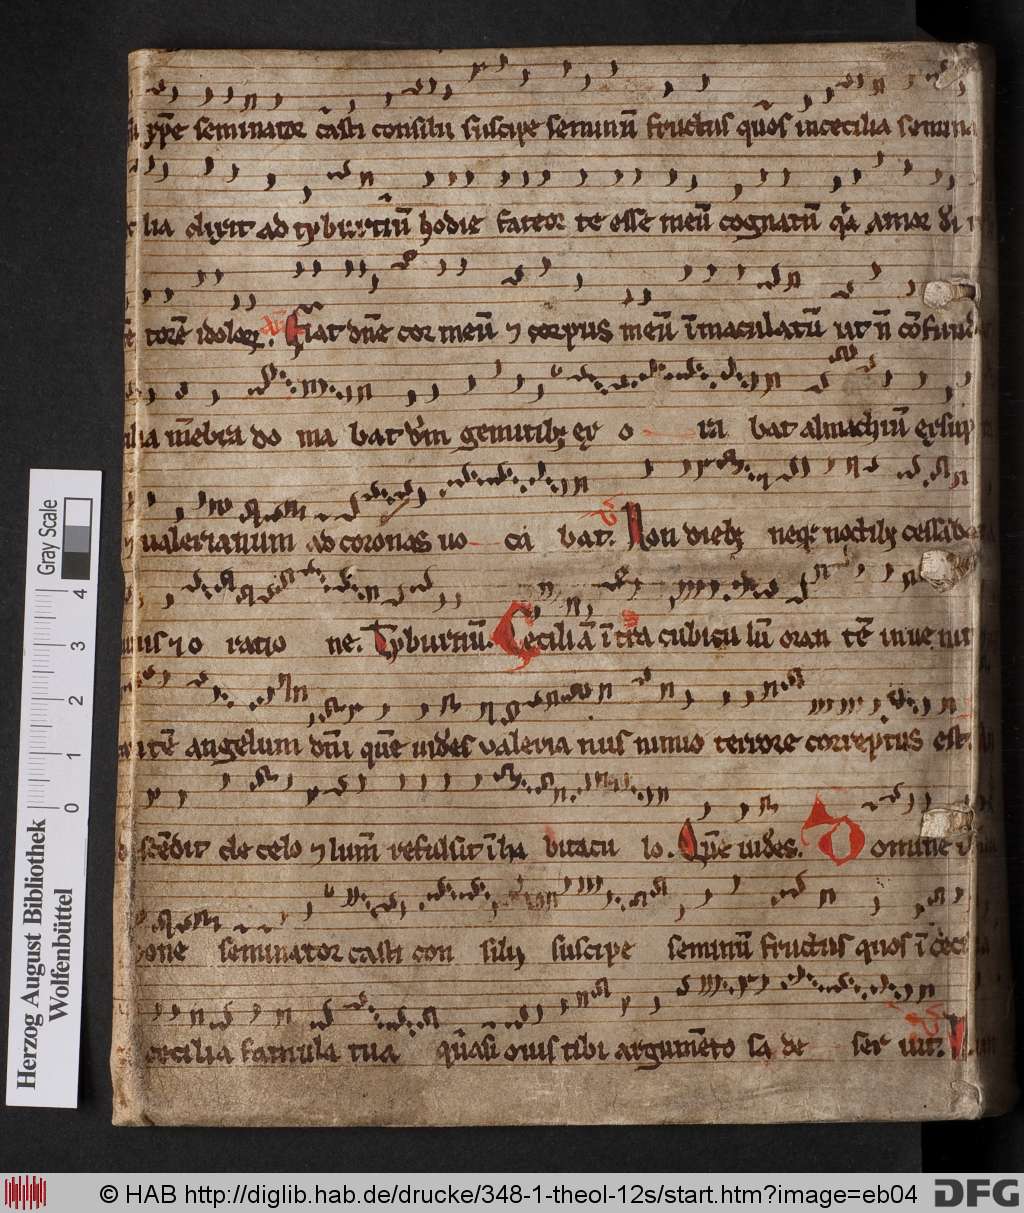 xp̄e seminator casti consilii suscipe seminū fructus quos incecilia semina
lia dixit ad tyburtiū hodie fateor te esse meū cognatū qa amor dī
torē idoloꝝ. Fiat dn̄e cor meū ⁊ corpus meū īmaculatū ut n̄ cōfund
lia mēbra do ma bat dm̄ gemitibꝫ ex o ra bat almachiū exsup
⁊ ualerianum ad coronas uo ca bat. Non diebꝫ neqꝫ noctibꝫ cessaba
us ⁊ o ratio ne. Tyburtiū. Ceciliā ītra cubicu lū oran tē inue nit
itē angelum dn̄i quē uides valeria nus nimio terrore correptus est.
scēdit de celo ⁊ lum̄ refulsit ī ha bitacu lo. Quē uides. Domine
bone seminator casti con silii suscipe seminū fructus quos ī ceci
cecilia famula tua quasi ouis tibi argumēto sa de ser uit.
Gray Scale
4
3
2
1
0
Herzog August Bibliothek
Wolfenbüttel
© HAB http://diglib.hab.de/drucke/348-1-theol-12s/start.htm?image=eb04
DFG